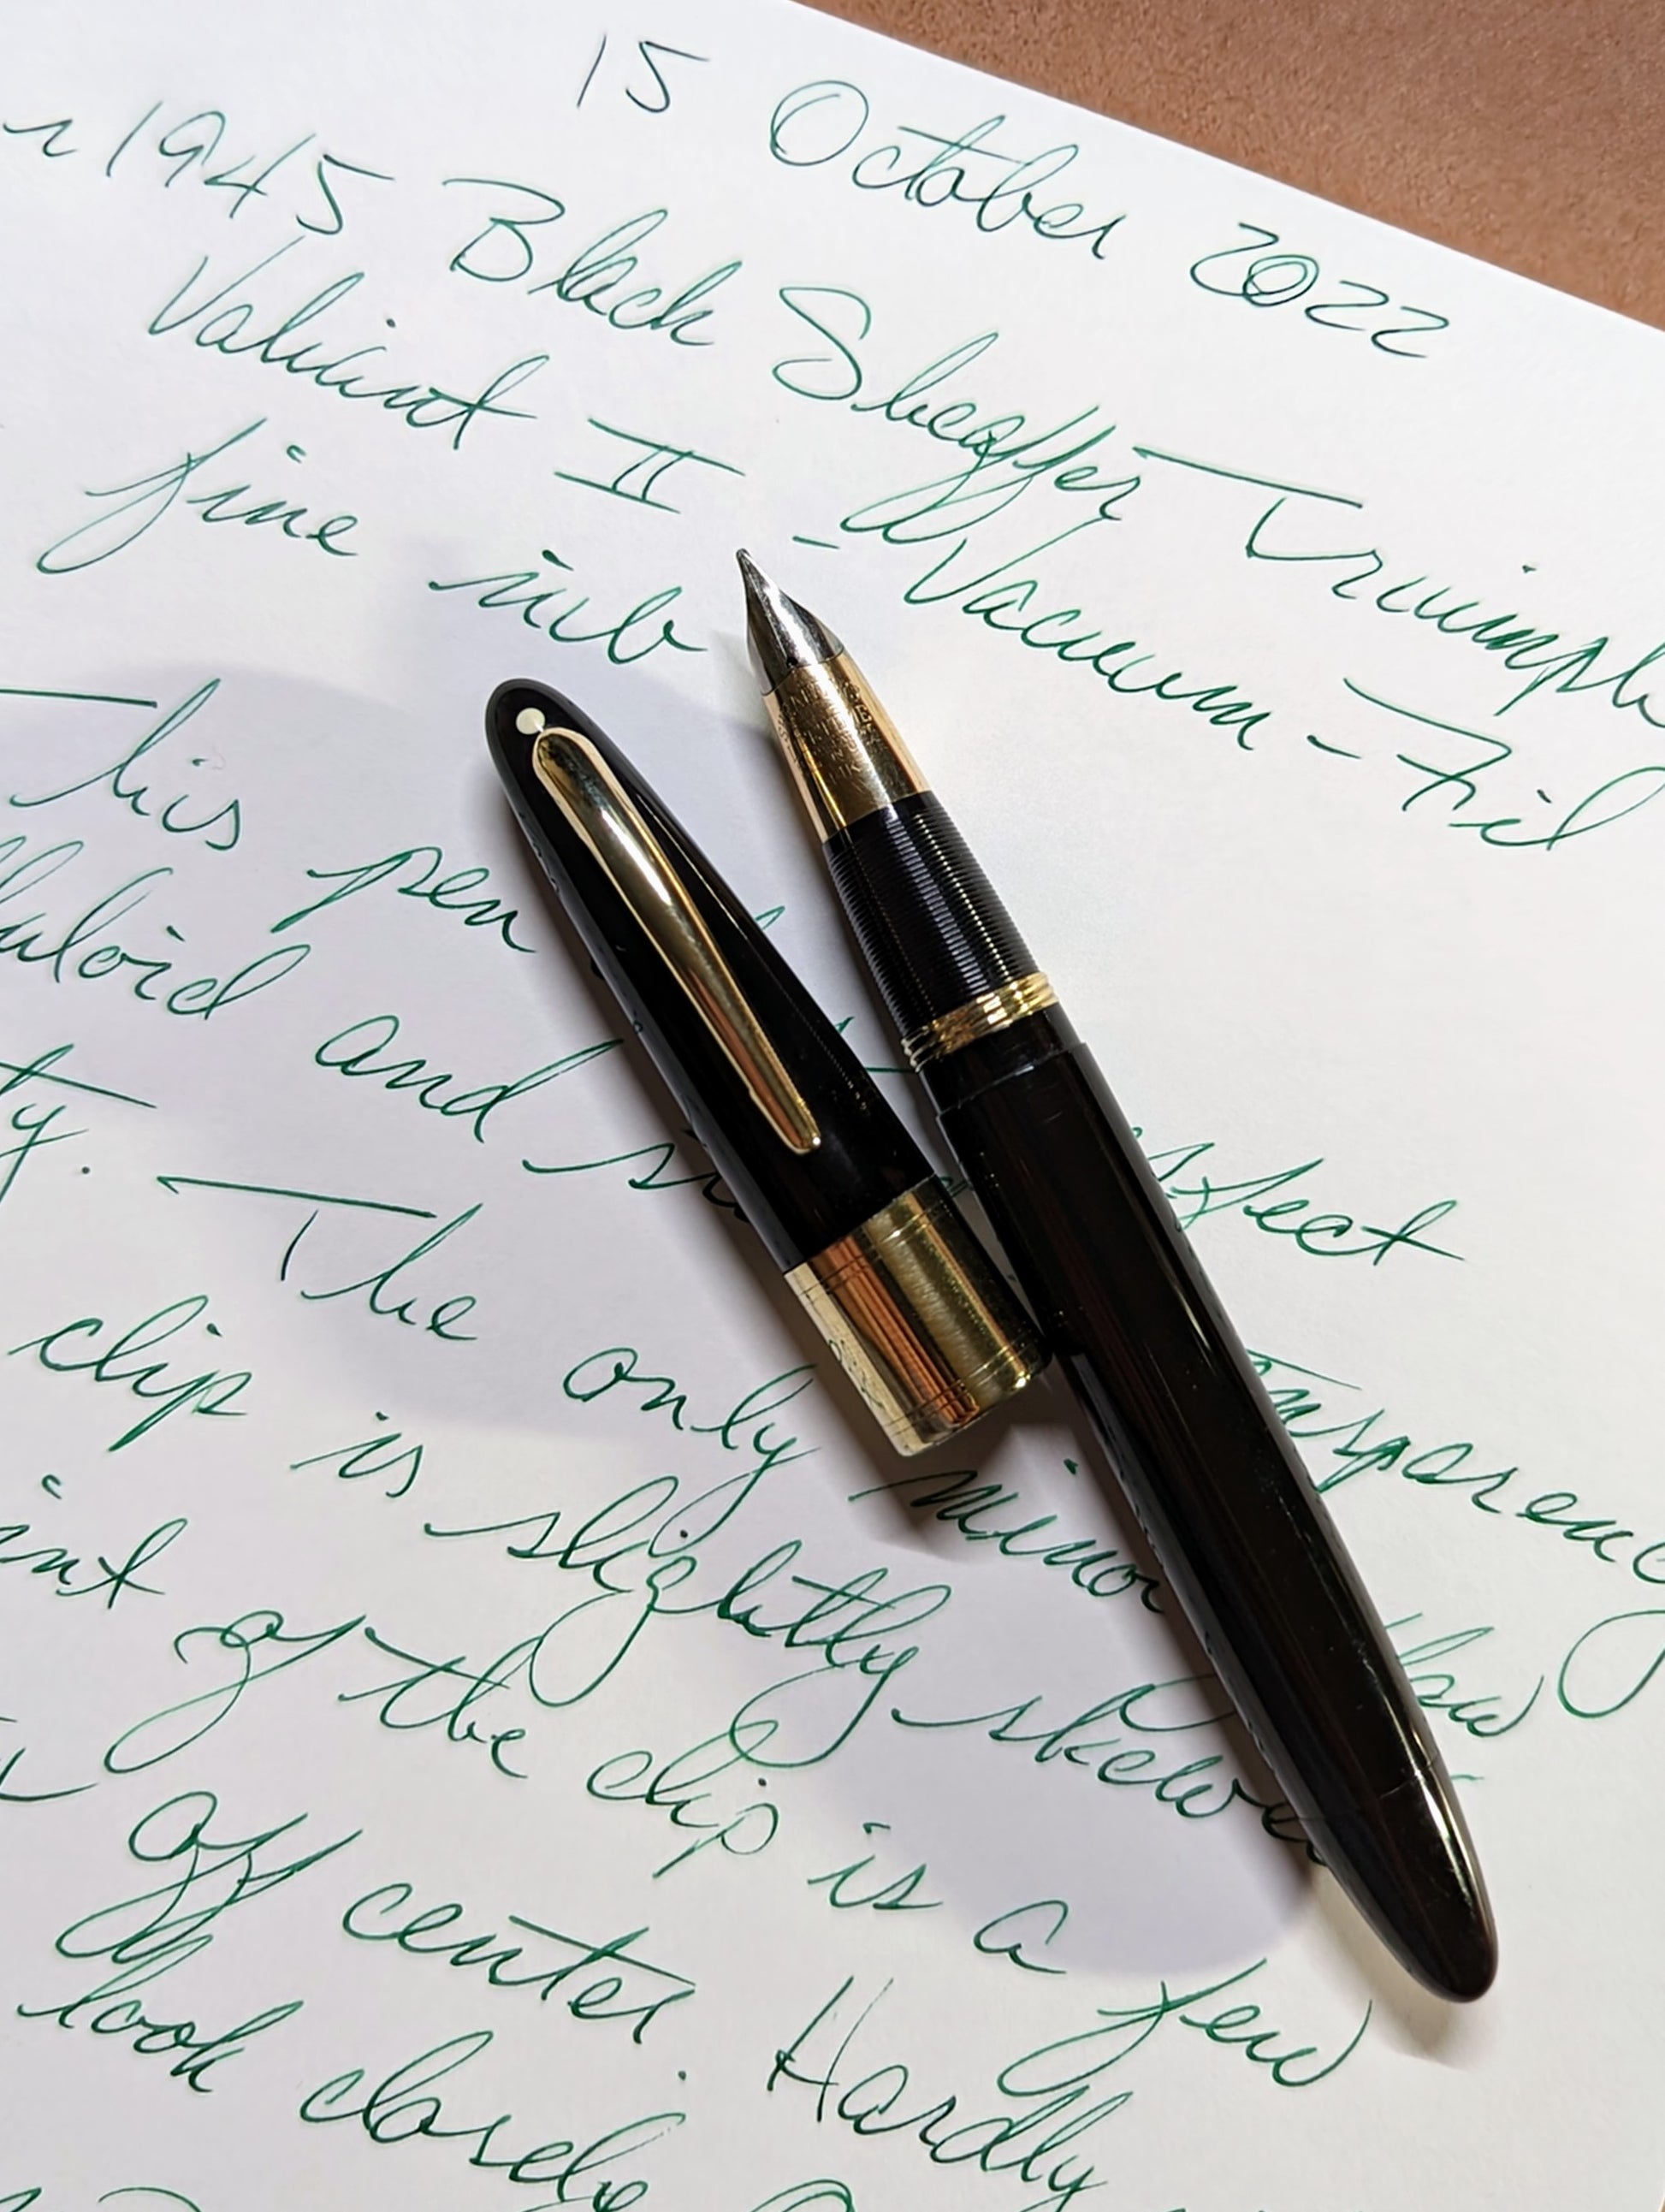 15 October 2022
1945 Black Sheaffer Triumph
Valiant II - Vacuum-Fil
fine nib
This pen
luloid and
ty. The only minor flaw
clip is slightly skewed
int of the clip is a few
off center. Hardly
look closely